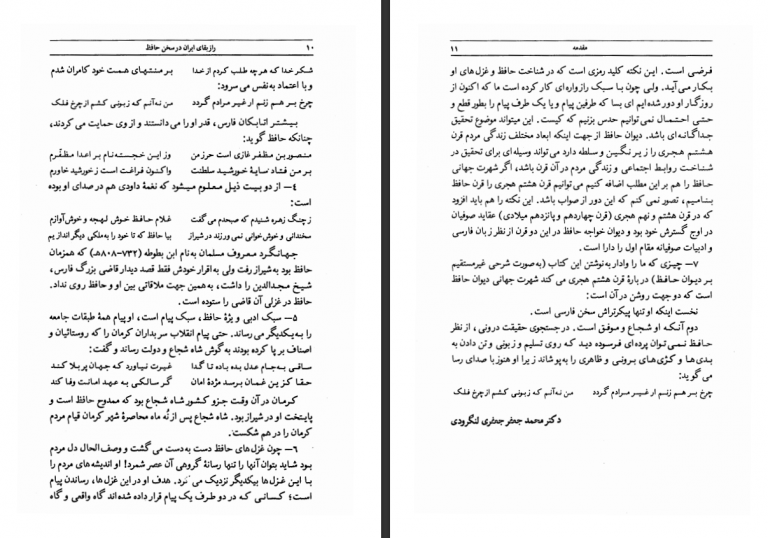 ۱۰
راز بقای ایران در سخن حافظ
شکر خدا که هر چه طلب کردم از خدا
بر منتهای همت خود کامران شدم
و با اعتماد به نفس می سرود:
چرخ بر هم زنم ار غیر مرادم گردد
من نه آنم که زبونی کشم از چرخ فلک
بیشتر اتابکان فارس، قدر او را می دانستند و از وی حمایت می کردند،
چنانکه حافظ گوید:
منصور بن مظفر غازی است حرز من
وز این خجسته نام بر اعدا مظفّرم
بر من فتاد سایهٔ خورشید سلطنت
واکنون فراغت است ز خورشید خاورم
۴— از دو بیت ذیل معلوم میشود که نغمهٔ داودی هم در صدای او بوده
است:
ز چنگ زهره شنیدم که صبحدم می گفت
غلام حافظ خوش لهجه و خوش آوازم
سخندانی و خوش خوانی نمی ورزند در شیراز
بیا حافظ که تا خود را به ملکی دیگر اندازیم
جهانگرد معروف مسلمان به نام ابن بطوطه (۷۳۲-۸۰۸هـ) که همزمان
حافظ بود به شیراز رفت ولی به اقرار خودش فقط قصد دیدار قاضی بزرگ فارس،
شیخ مجدالدین را داشت، به همین جهت ملاقاتی بین او و حافظ روی نداد.
حافظ در غزلی آن قاضی را ستوده است.
۵— سبک ادبی و یژهٔ حافظ، سبک پیام است، او پیام همهٔ طبقات جامعه
را به یکدیگر می رساند. حتی پیام انقلاب سربداران کرمان را که روستائیان و
اصناف بر پا کرده بودند به گوش شاه شجاع و دولت رساند و گفت:
ساقی به جام عدل بده باده تا گدا
غیرت نیاورد که جهان پر بلا کند
حقا کزین غمان برسد مژدهٔ امان
گر سالکی به عهد امانت وفا کند
کرمان در آن وقت جزو کشور شاه شجاع بود که ممدوح حافظ است و
پایتخت او در شیراز بود. شاه شجاع پس از نُه ماه محاصرهٔ شهر کرمان قیام مردم
کرمان را در هم شکست.
۶— چون غزل های حافظ دست به دست می گشت و وصف الحال دل مردم
بود شاید بتوان آنها را تنها رسانهٔ گروهی آن عصر شمرد! او اندیشه های مردم را
با این غزل ها بیکدیگر نزدیک می کرد. هدف او در این غزل ها، رساندن پیام
است؛ کسانی که در دو طرف یک پیام قرار داده شده اند گاه واقعی و گاه
مقدمه
۱۱
فرضی است. این نکته کلید رمزی است که در شناخت حافظ و غزل های او
بکار می آید. ولی چون با سبک راز واره ای کار کرده است ما که اکنون از
روزگار او دور شده ایم ای بسا که طرفین پیام و یا یک طرف پیام را بطور قطع و
حتی احتمال نمی توانیم حدس بزنیم که کیست. این میتواند موضوع تحقیق
جداگانه ای باشد. دیوان حافظ از جهت اینکه ابعاد مختلف زندگی مردم قرن
هشتم هجری را زیر نگین و سلطه دارد می تواند وسیله ای برای تحقیق در
شناخت روابط اجتماعی و زندگی مردم در آن قرن باشد، اگر شهرت جهانی
حافظ را هم بر این مطلب اضافه کنیم می توانیم قرن هشتم هجری را قرن حافظ
بنامیم، تصور نمی کنم که این دور از صواب باشد. این نکته را هم باید افزود
که در قرن هشتم و نهم هجری (قرن چهاردهم و پانزدهم میلادی) عقاید صوفیان
در اوج گسترش خود بود و دیوان خواجه حافظ در این دو قرن از نظر زبان فارسی
و ادبیات صوفیانه مقام اول را دارا است.
۷— چیزی که ما را وادار به نوشتن این کتاب (به صورت شرحی غیرمستقیم
بر دیوان حافظ) در بارهٔ قرن هشتم هجری می کند شهرت جهانی دیوان حافظ
است که دو جهت روشن در آن است:
نخست اینکه او تنها پیکرتراش سخن فارسی است.
دوم آنکه او شجاع و موفق است. در جستجوی حقیقت درونی، از نظر
حافظ نمی توان پرده ای فرسوده دید که روی تسلیم و زبونی و تن دادن به
بدی ها و کژی های برونی و ظاهری را به پوشاند زیرا او هنوز با صدای رسا
می گوید:
چرخ بر هم زنم ار غیر مرادم گردد
من نه آنم که زبونی کشم از چرخ فلک
دکتر محمد جعفر جعفری لنگرودی